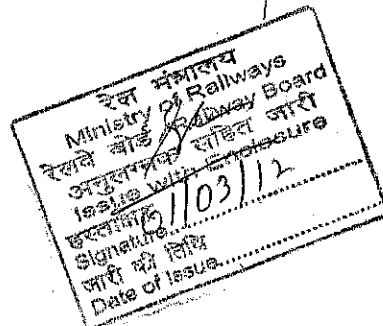 रेल मंत्रालय
Ministry of Railways
रेलवे बोर्ड Railway Board
अनुलग्नक सहित जारी
Issue with Enclosure
हस्ताक्षर
01/03/12
Signature
जारी की तिथि
Date of Issue